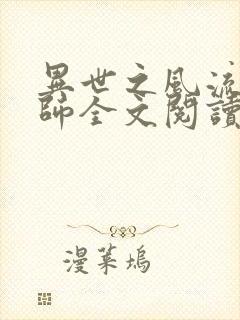 異世之風流
師全文閱讀
漫葉塢